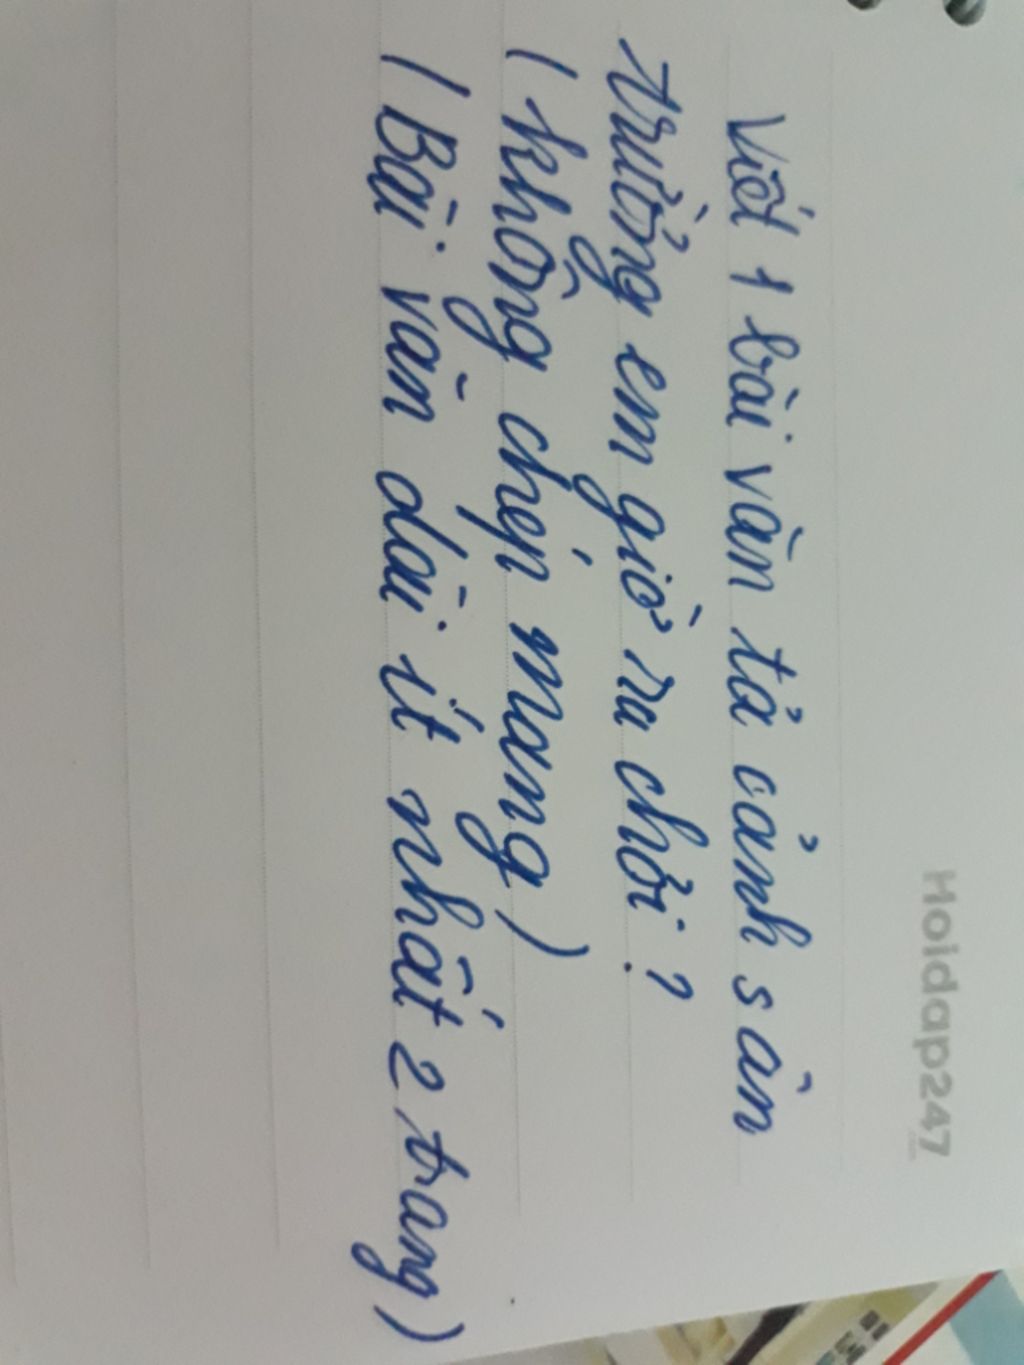 Hoidap247
Viết 1 bài văn tả cảnh sân
trường em giờ ra chơi ?
( không chép mạng )
( Bài văn dài ít nhất 2 trang )